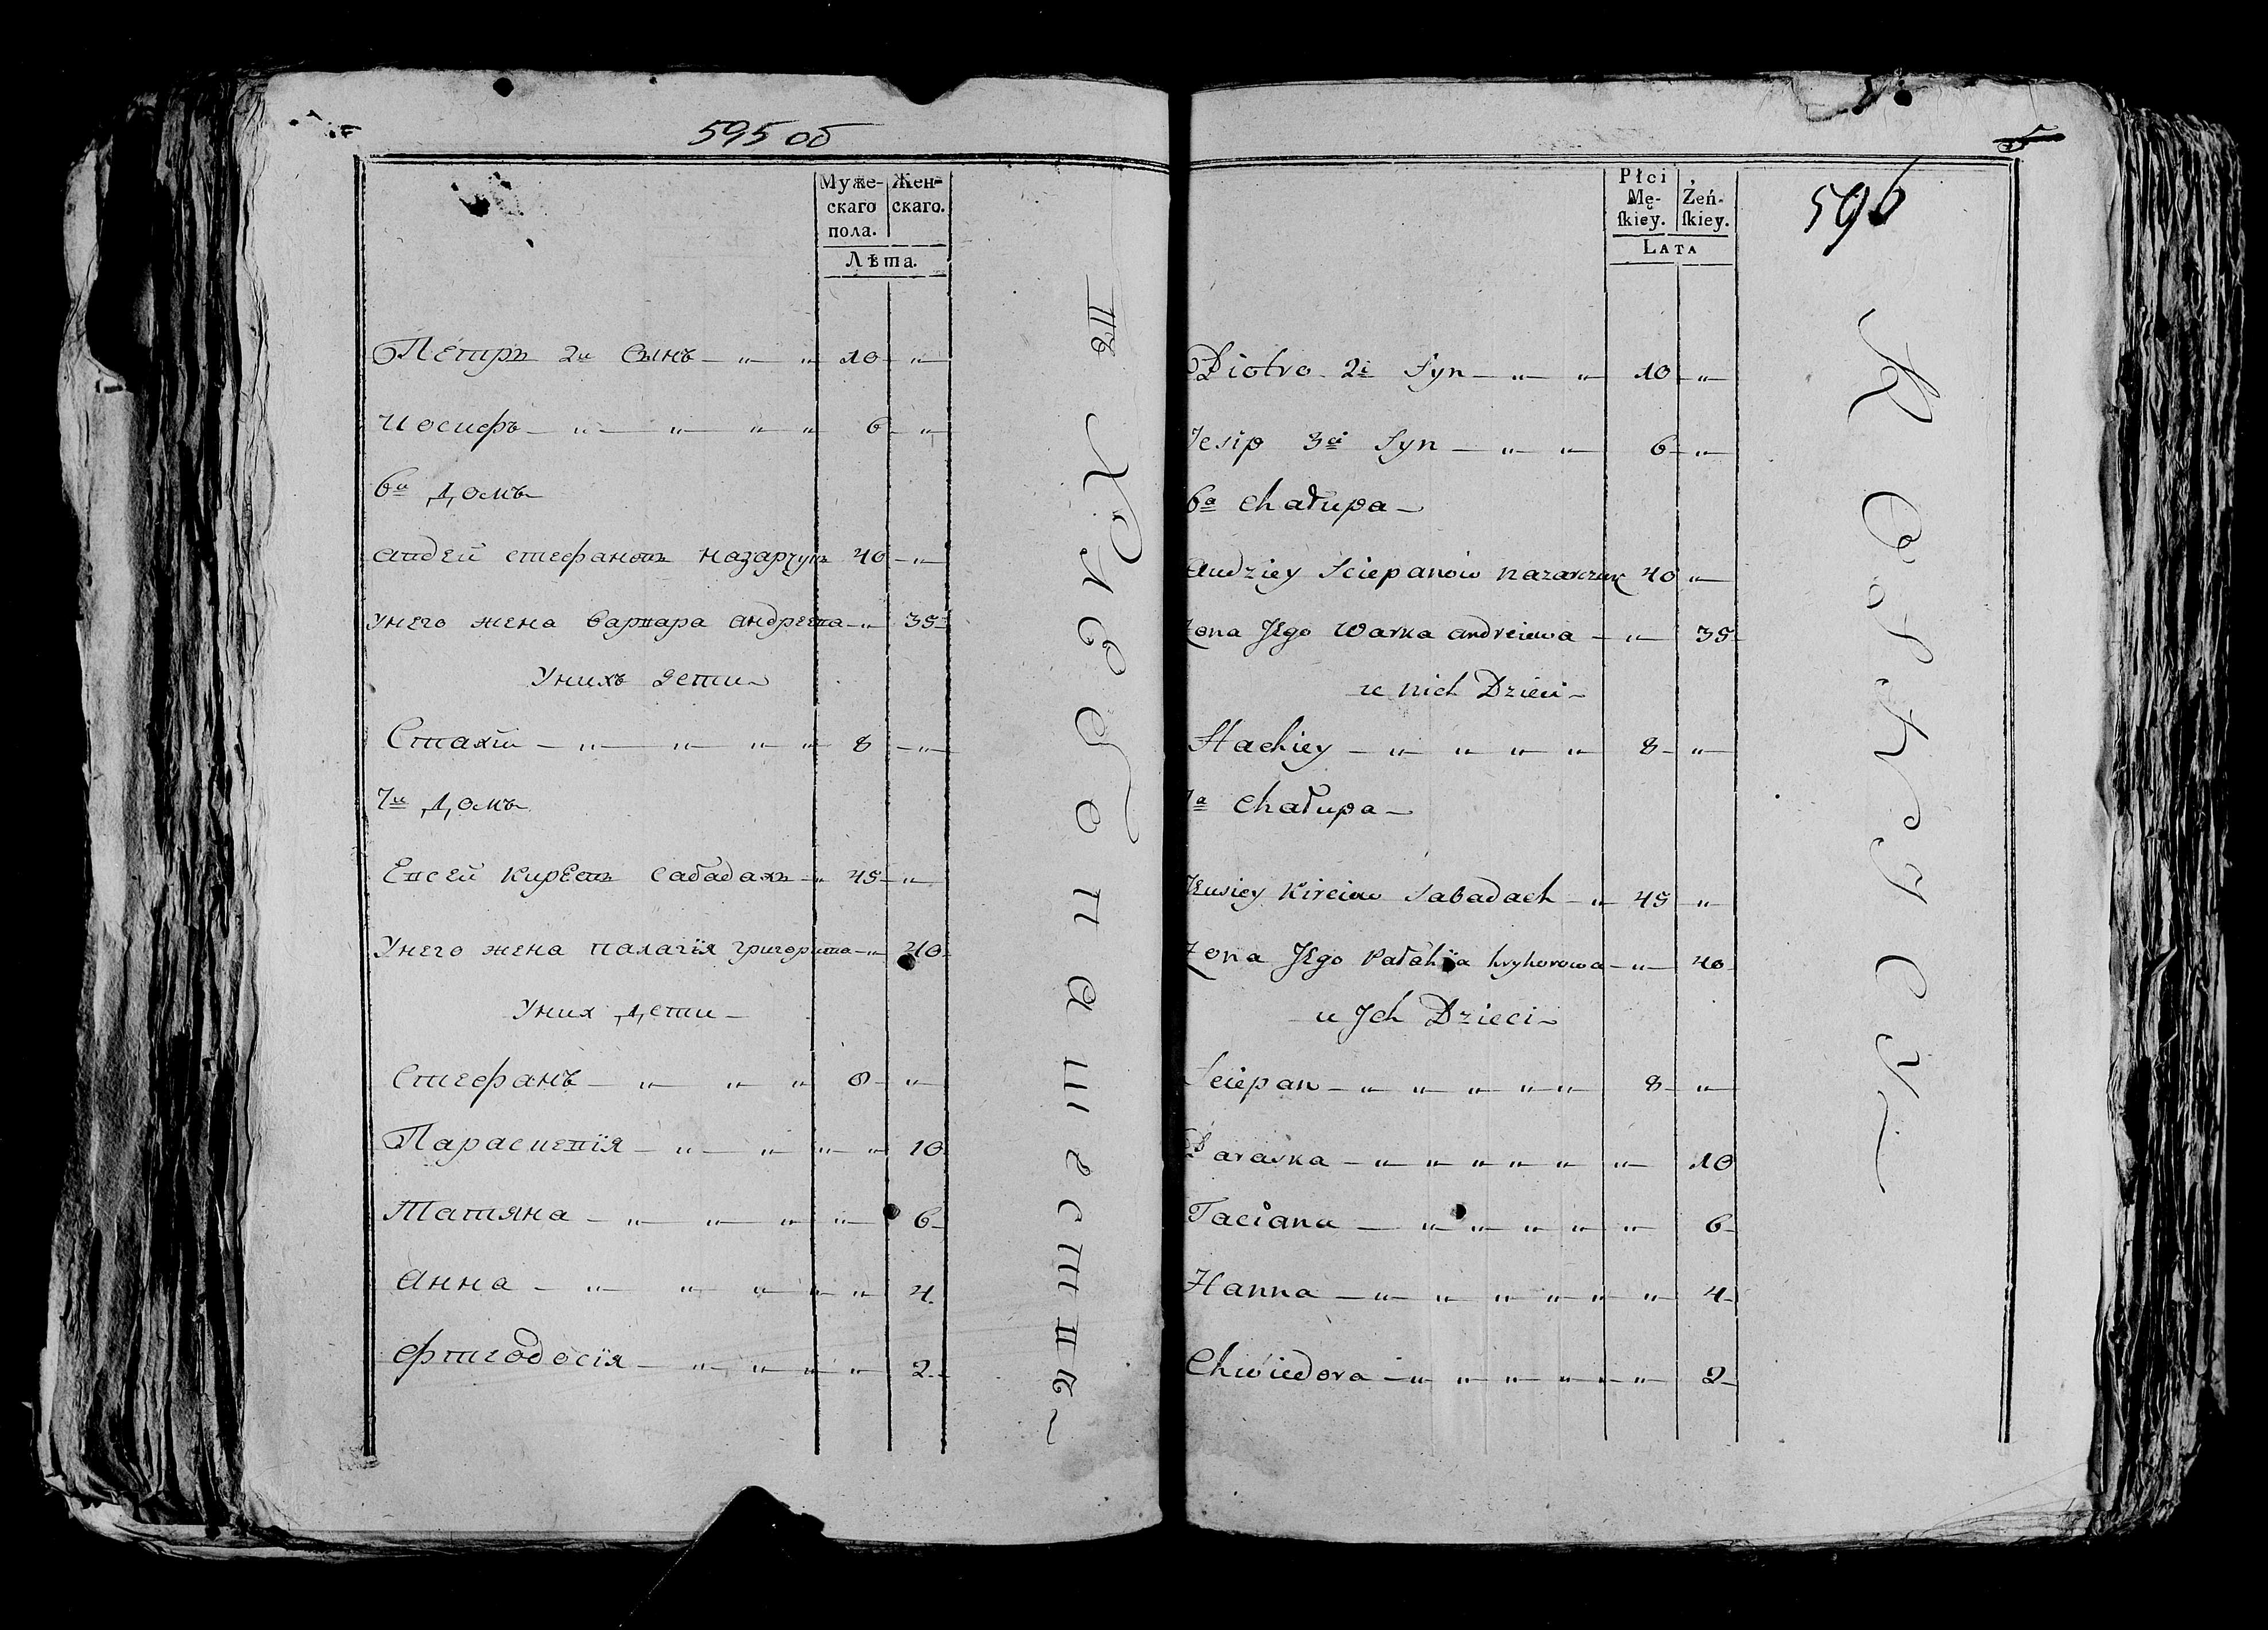 595 об
Муже-
скаго
пола.
Жен-
скаго.
Лѣта.
Петръ 2й Сынъ — „ — „ 10 — „
иосифъ — „ — „ — „ — „ 6 — „
6й Домъ
андей стефановъ назарчукъ 40 — „
унего жена варвара андреева — „ 35
Унихъ дети —
Стахій — „ — „ — „ — „ 8 — „
7й Домъ
Евсей Киреевъ сабадахъ — „ 45 — „
Унего жена палагїя григорива — „ 40
Уних дети —
Стефанъ — „ — „ — „ 8 — „
Параскевїя — „ — „ — „ — „ 10
Татяна — „ — „ — „ — „ 6
анна — „ — „ — „ — „ — „ 4
Фтеодосїя — „ — „ — „ — „ 2
5
596
Płci
Mę-
ſkiey.
Żeń-
ſkiey.
Lata
Piotro 2i Syn — „ — „ 10 — „
Jesip 3ci Syn — „ — „ 6 — „
6a chałupa —
Audziey Sciepanow nazarczuk 40 „
żona Jego Warka andreiewa — „ — 35
u nich Dzieci —
Stachiey — „ — „ — „ — „ 8 — „
7a chałupa —
Jewsiey Kireiew Sabadach — „ 45 „
Zona Jego Pałahia hryhorowa — „ — 40
u Jch Dzieci —
Sciepan — „ — „ — „ — „ — „ 8 — „
Paraska — „ — „ — „ — „ — „ — „ 10
Taciana — „ — „ — „ — „ — „ 6
Hanna — „ — „ — „ — „ — „ — „ 4
Chwiedora — „ — „ — „ — „ — „ 2